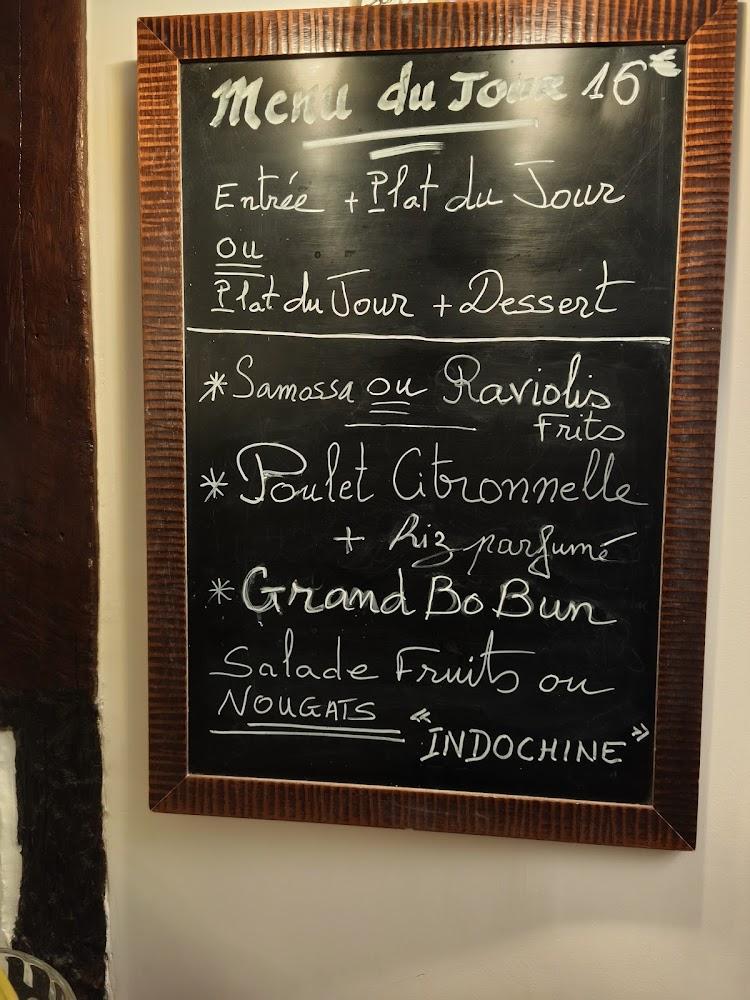 Menu du Jour 16€
Entrée + Plat du Jour
ou
Plat du Jour + Dessert
* Samossa ou Raviolis
Frits
* Poulet Citronnelle
+ Riz parfumé
* Grand Bo Bun
Salade Fruits ou
NOUGATS
« INDOCHINE »